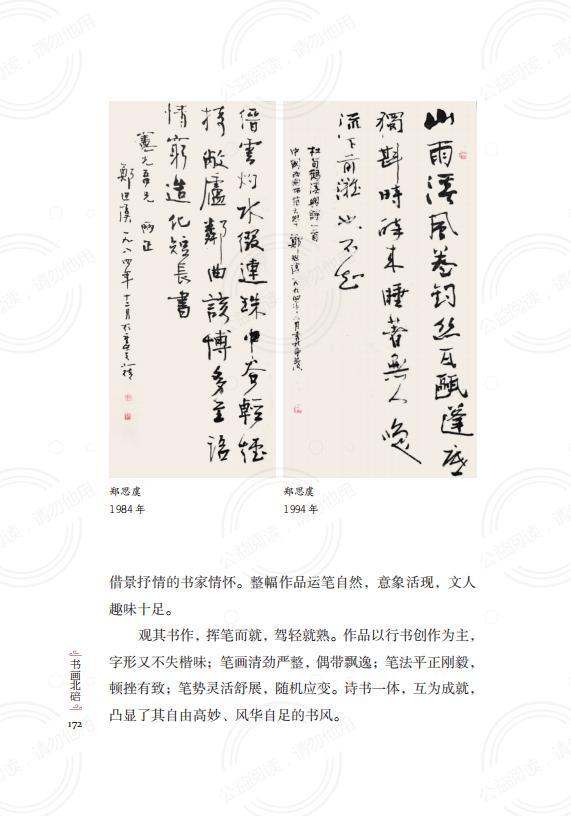 縉雲灼水綴連珠中谷輕
敞廬鄰曲談博多至語
情窮造化短長書
吾兄 兩正
鄭思虞一九八四年十二月於
山雨溪風卷釣絲瓦甌蓬底
獨斟時醉來睡著無人喚
流下前灘也不知
杜荀鶴溪興詩一首
中國西南師范大學 鄭思虞一九九四年八月書於
郑思虞
1984 年
郑思虞
1994 年
借景抒情的书家情怀。整幅作品运笔自然，意象活现，文人
趣味十足。
观其书作，挥笔而就，驾轻就熟。作品以行书创作为主，
字形又不失楷味；笔画清劲严整，偶带飘逸；笔法平正刚毅，
顿挫有致；笔势灵活舒展，随机应变。诗书一体，互为成就，
凸显了其自由高妙、风华自足的书风。
书画北碚
172
公益阅读，请勿他用